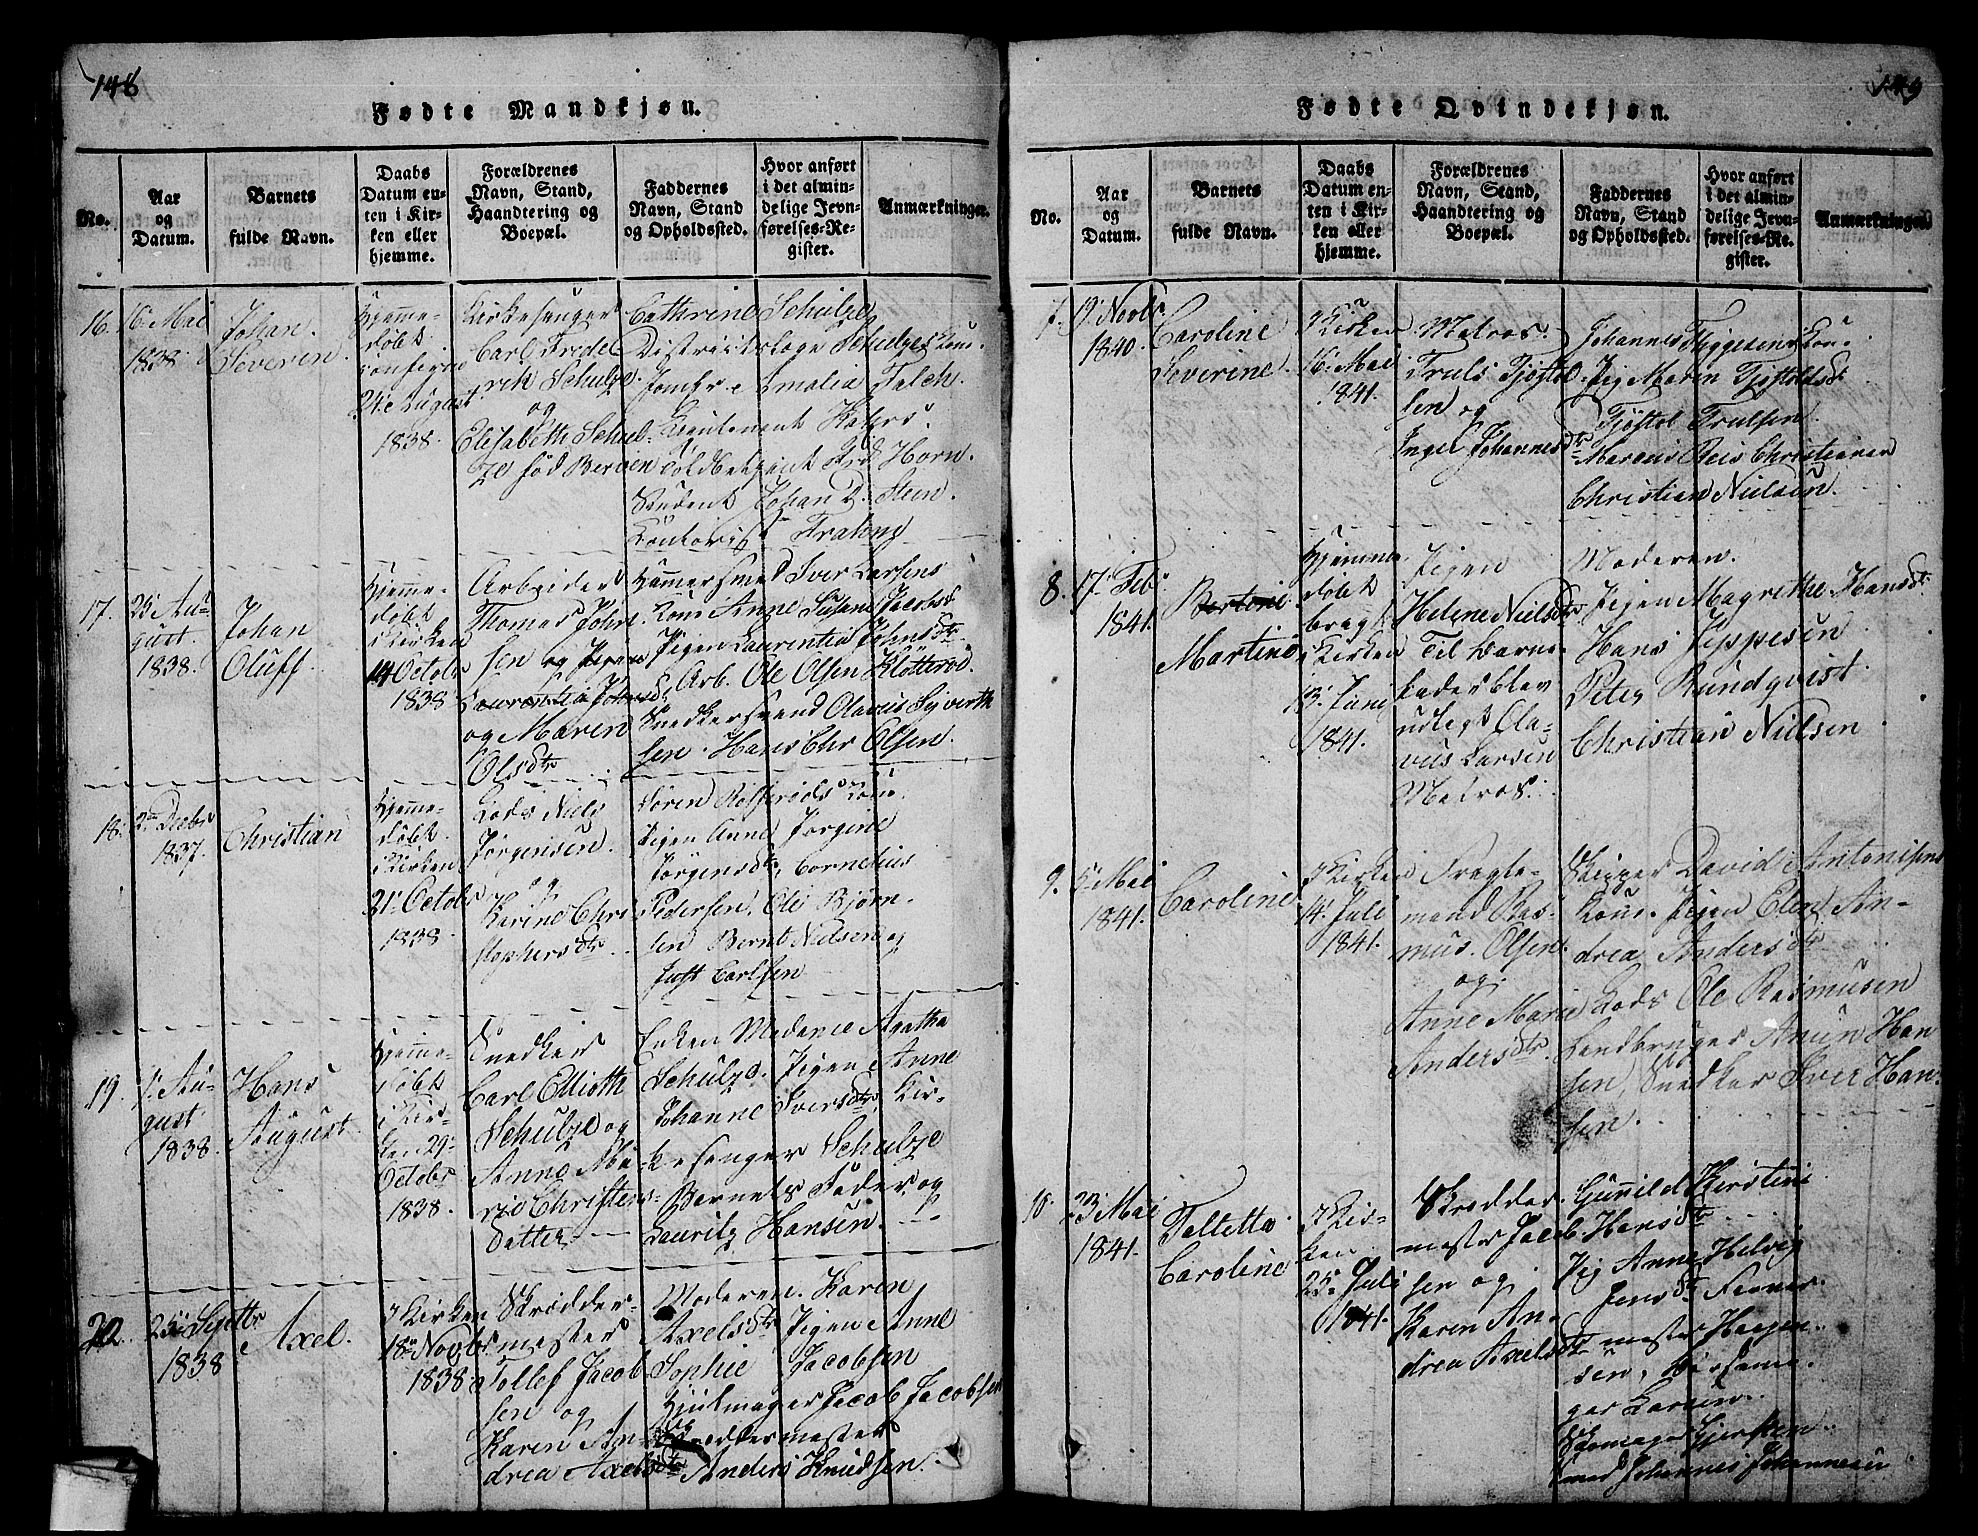 148
Fødte Mandkjøn.
No.
Aar
og
Datum.
Barnets
fulde Navn.
Daabs
Datum en-
ten i Kir-
ken eller
hjemme.
Forældrenes
Navn, Stand,
Haandtering og
Boepæl.
Faddernes
Navn, Stand
og Opholdssted.
Hvor anført
i det almin-
delige Jevn-
førelses-Re-
gister.
Anmærkninger.
16.
16 Mai
1838.
Johan
Severin
Hjemme-
døbt
24de August
1838.
Kirkesanger
Carl Frede
rik Schulze
og
Elisabeth Schul-
ze fød Bersen
Cathrine Schulze
Jomfr. Amalia Falch.
Lieutenant
Toldbetjent Horn.
Student Johan Steen.
Kontorist
17.
25 Au-
gust
1838.
Johan
Oluff.
Hjemme-
døbt
i Kirken
14 Octobr
1838
Arbeider
Thomas John-
sen og Pigen
Laurentia Johnsd
og Maren
Olsdtr
Hamersmed Iver Larsens
Kone Anne Susane Jacobsd
Pigen Laurentia Johnsdtr
Arb. Ole Olsen
Snedkersvend Olavus Syverth
sen. Hans Chr Olsen.
18.
2 Decbr
1837.
Christian
Hjemme-
døbt
i Kirken
21 Octobr
1838.
Lods Niels
Jørgensen.
og
Karine Chri
stophersdtr
Søren Kone.
Pigen Anne Jørgine
Jørgensdtr, Cornelius
Pedersen, Ole Bjørn-
sen Bernt Nielsen og
Just Carlsen
19.
1 Au-
gust
1838.
Hans
August.
Hjemme-
døbt
i Kir-
ken 29
Octobr
1838.
Snedker
Carl Ellioth
Schulze og
Anne Ma-
rie Christens-
datter
Enken Madame Agatha
Schulze. Pigen Anne
Johanne Iversdtr, Kir-
kesanger Schulze
Barnets Fader, og
Lauritz Hansen.
20.
25 Septbr
1838
Axel.
I Kirken
18 Novbr
1838
Skrædder-
mester
Tollef Jacob
sen og
Karen An-
drea Axelsdtr
Moderen. Karen
Axelsdtr Pigen Anne
Sophie Jacobsen
Hjulmager Jacob Jacobsen
og Skreddermester
Anders Knudsen.
149
Fødte Qvindekjøn.
No.
Aar
og
Datum.
Barnets
fulde Navn.
Daabs
Datum en-
ten i Kir-
ken eller
hjemme.
Forældrenes
Navn, Stand,
Haandtering og
Boepæl.
Faddernes
Navn, Stand
og Opholdssted.
Hvor anført
i det almin-
delige Jevn-
førelses-Re-
gister.
Anmærkninger.
7.
9 Novbr
1840.
Caroline
Severine
I Kirken
16 Mai
1841.
Matros.
Truls Tjøstol
sen og
Inger Johannesdtr
Johannes Kone
Pig Maren Tjøstolsdtr
Tjøstol Trulsen.
Marcus Reis Christiansen
Christian Nielsen.
8.
17 Feb.
1841.
Martine
Hjemme
døbt
i Kirken
13 Juni
1841.
Pigen
Helene Nielsdtr
Til Barne-
fader blev
udlagt Ola-
vus Larsen
Matros.
Moderen.
Pigen Magrethe Hansdtr
Hans Jeppesen
Peter Rundqvist
Christian Nielsen
9.
5 Mai
1841.
Caroline
I Kirken
14 Juli
1841.
Fragte-
mand Ras-
mus. Olsen
og
Anne Marie
Andersdtr.
Skipper David Antonisens
Kone. Pigen Elen An-
drea Andersdtr
Lods Ole Rasmusen
Landbruger Amun Han
sen, Snedker Iver Han-
sen.
10.
23 Mai
1841.
Caroline
I Kir-
ken
25 Juli
1841.
Skrædder
mester Jacob
sen og
Karen An-
drea Axelsdtr
Gunild Kirstine
Hansdtr
Pig Anne Helvig
Jensdtr
mester Haagen-
sen,
ger Larsen
Johannes Johannesen